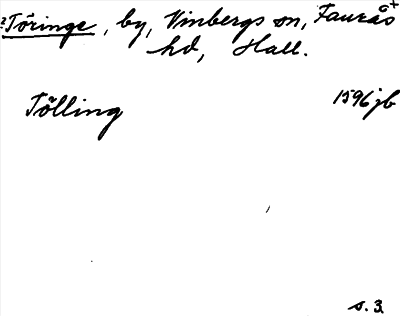 Töringe, by, Vinbergs sn, Faurås
hd, Hall.
Tölling 1596 jb
s. 3